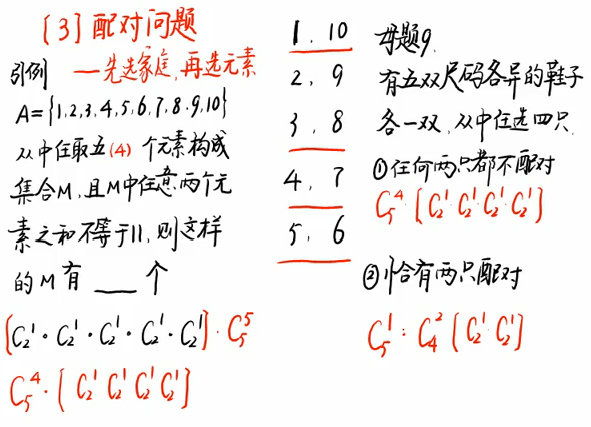 [3] 配对问题
引例 —先选家庭,再选元素
A={1,2,3,4,5,6,7,8,9,10}
从中任取五(4)个元素构成
集合M,且M中任意两个元
素之和不等于11,则这样
的M有 ___ 个
[C₂¹·C₂¹·C₂¹·C₂¹·C₂¹]·C₅⁵
C₅⁴·[C₂¹ C₂¹ C₂¹ C₂¹]
1, 10
2, 9
3, 8
4, 7
5, 6
母题9.
有五双尺码各异的鞋子
各一双,从中任选四只
①任何两只都不配对
C₅⁴[C₂¹ C₂¹ C₂¹ C₂¹]
②恰有两只配对
C₅¹·C₄²[C₂¹ C₂¹]